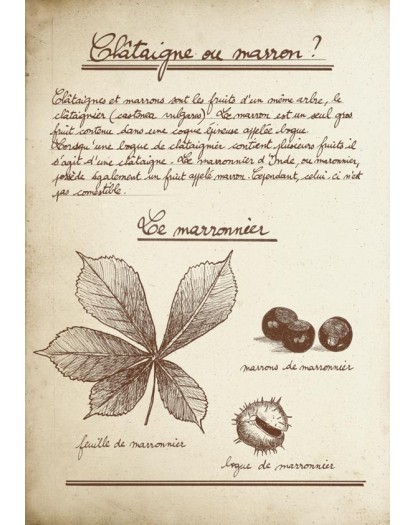 Châtaigne ou marron ?
Châtaignes et marrons sont les fruits d'un même arbre, le
châtaignier (castanea vulgaris). Le marron est un seul gros
fruit contenu dans une coque épineuse appelée bogue.
Lorsqu'une bogue de châtaignier contient plusieurs fruits il
s'agit d'une châtaigne. Le marronnier d'Inde, ou marronnier,
possède également un fruit appelé marron. Cependant, celui-ci n'est
pas comestible.
Le marronnier
marrons de marronnier
feuille de marronnier
bogue de marronnier